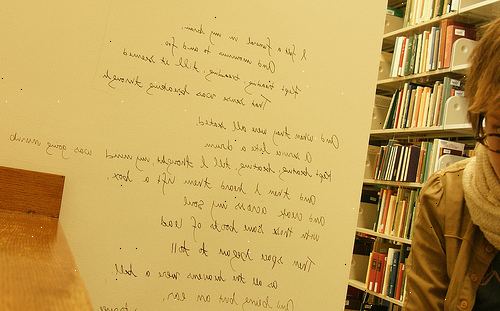 I felt a funeral in my brain,
And mourners to and fro
Kept treading, treading, till it seemed
That sense was breaking through
And when they were all seated
A service like a drum
Kept beating, beating, till I thought my mind was going numb
And then I heard them lift a box,
And creak across my soul
with those same boots of lead
Then space began to toll
as all the heavens were a bell
And being but an ear,